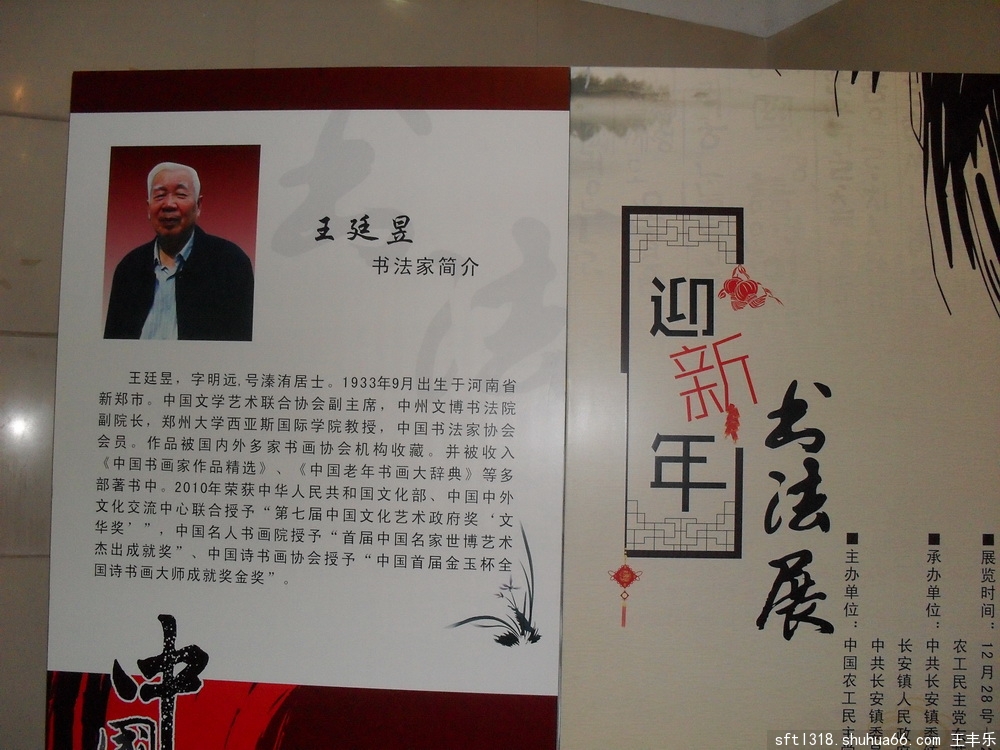 书法
王廷昱
书法家简介
王廷昱，字明远,号溱洧居士。1933年9月出生于河南省
新郑市。中国文学艺术联合协会副主席，中州文博书法院
副院长，郑州大学西亚斯国际学院教授，中国书法家协会
会员。作品被国内外多家书画协会机构收藏。并被收入
《中国书画家作品精选》、《中国老年书画大辞典》等多
部著书中。2010年荣获中华人民共和国文化部、中国中外
文化交流中心联合授予“第七届中国文化艺术政府奖‘文
华奖’”，中国名人书画院授予“首届中国名家世博艺术
杰出成就奖”、中国诗书画协会授予“中国首届金玉杯全
国诗书画大师成就奖金奖”。
中国
迎新年
书法展
■展览时间：12月28号
农工民主党
■承办单位：中共长安镇委
长安镇人民政
中共长安镇委
■主办单位：中国农工民主
sftl318.shuhua66.com 王丰乐